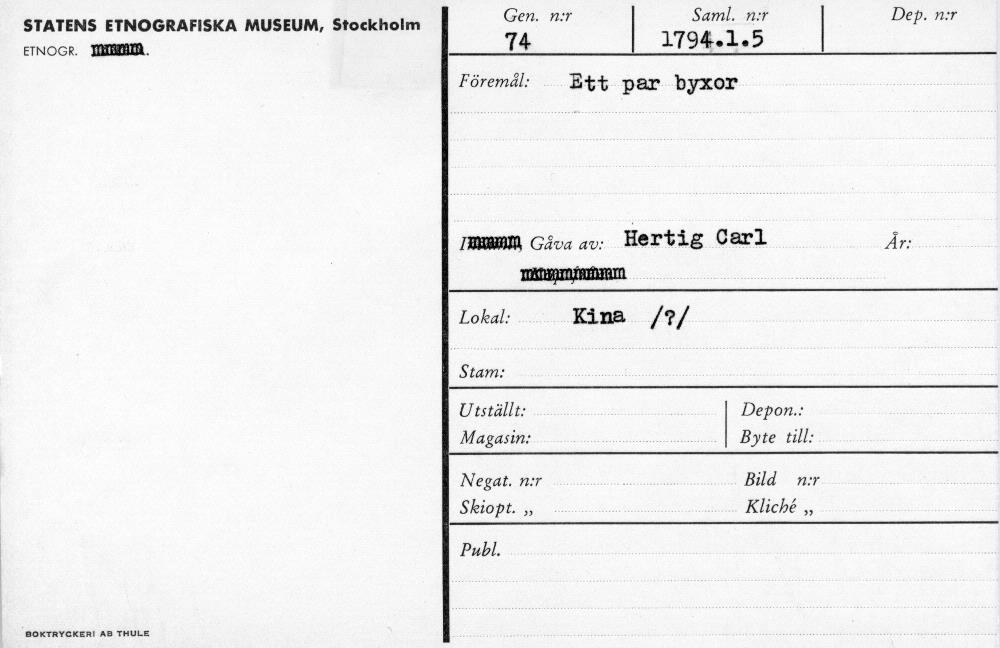 STATENS ETNOGRAFISKA MUSEUM, Stockholm
ETNOGR.
BOKTRYCKERI AB THULE
Gen. n:r Saml. n:r Dep. n:r
74 1794.1.5
Föremål: Ett par byxor
Gåva av: Hertig Carl År:
Lokal: Kina /?/
Stam:
Utställt: Depon.:
Magasin: Byte till:
Negat. n:r Bild n:r
Skiopt. „ Kliché „
Publ.